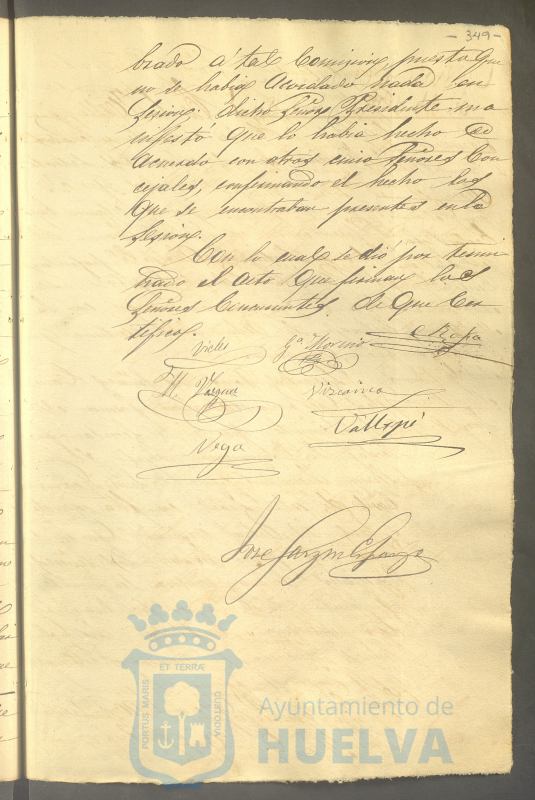 - 349 -
brado á tal Comision, puesto que
no se habia acordado nada en
Sesion: dicho Señor Presidente ma
nifestó que lo habia hecho de
acuerdo con otros cinco Señores Con
cejales, confirmando el hecho los
que se encontraban presentes en la
Sesion.
Con lo cual se dió por termi
nado el acto que firman los
Señores Concurrentes, de que Cer
tifico.
Gª Moreno
M. Vazquez Vizcaino
Vega
José Garzon
PORTUS MARIS ET TERRÆ CUSTODIA
Ayuntamiento de
HUELVA